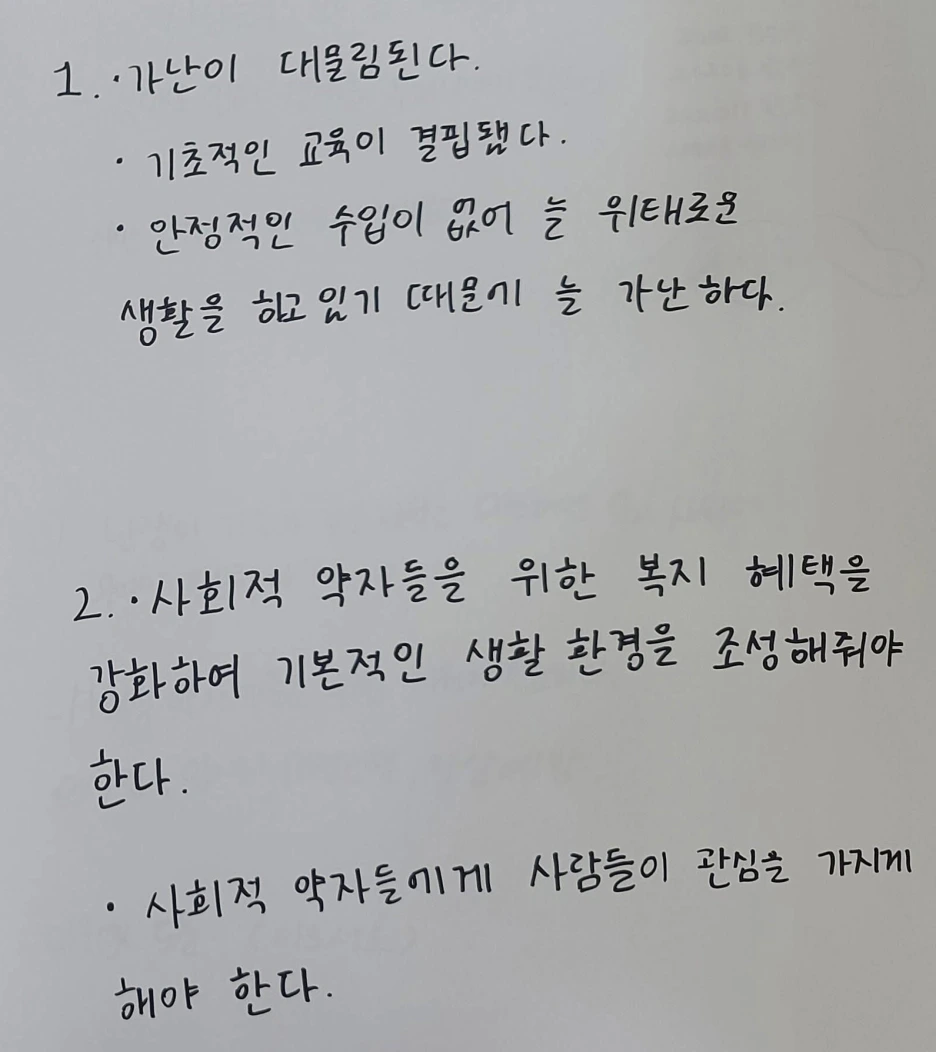 1. ·가난이 대물림된다.
· 기초적인 교육이 결핍됐다.
· 안정적인 수입이 없어 늘 위태로운
생활을 하고 있기 때문에 늘 가난하다.
2. ·사회적 약자들을 위한 복지 혜택을
강화하여 기본적인 생활 환경을 조성해줘야
한다.
· 사회적 약자들에게 사람들이 관심을 가지게
해야 한다.